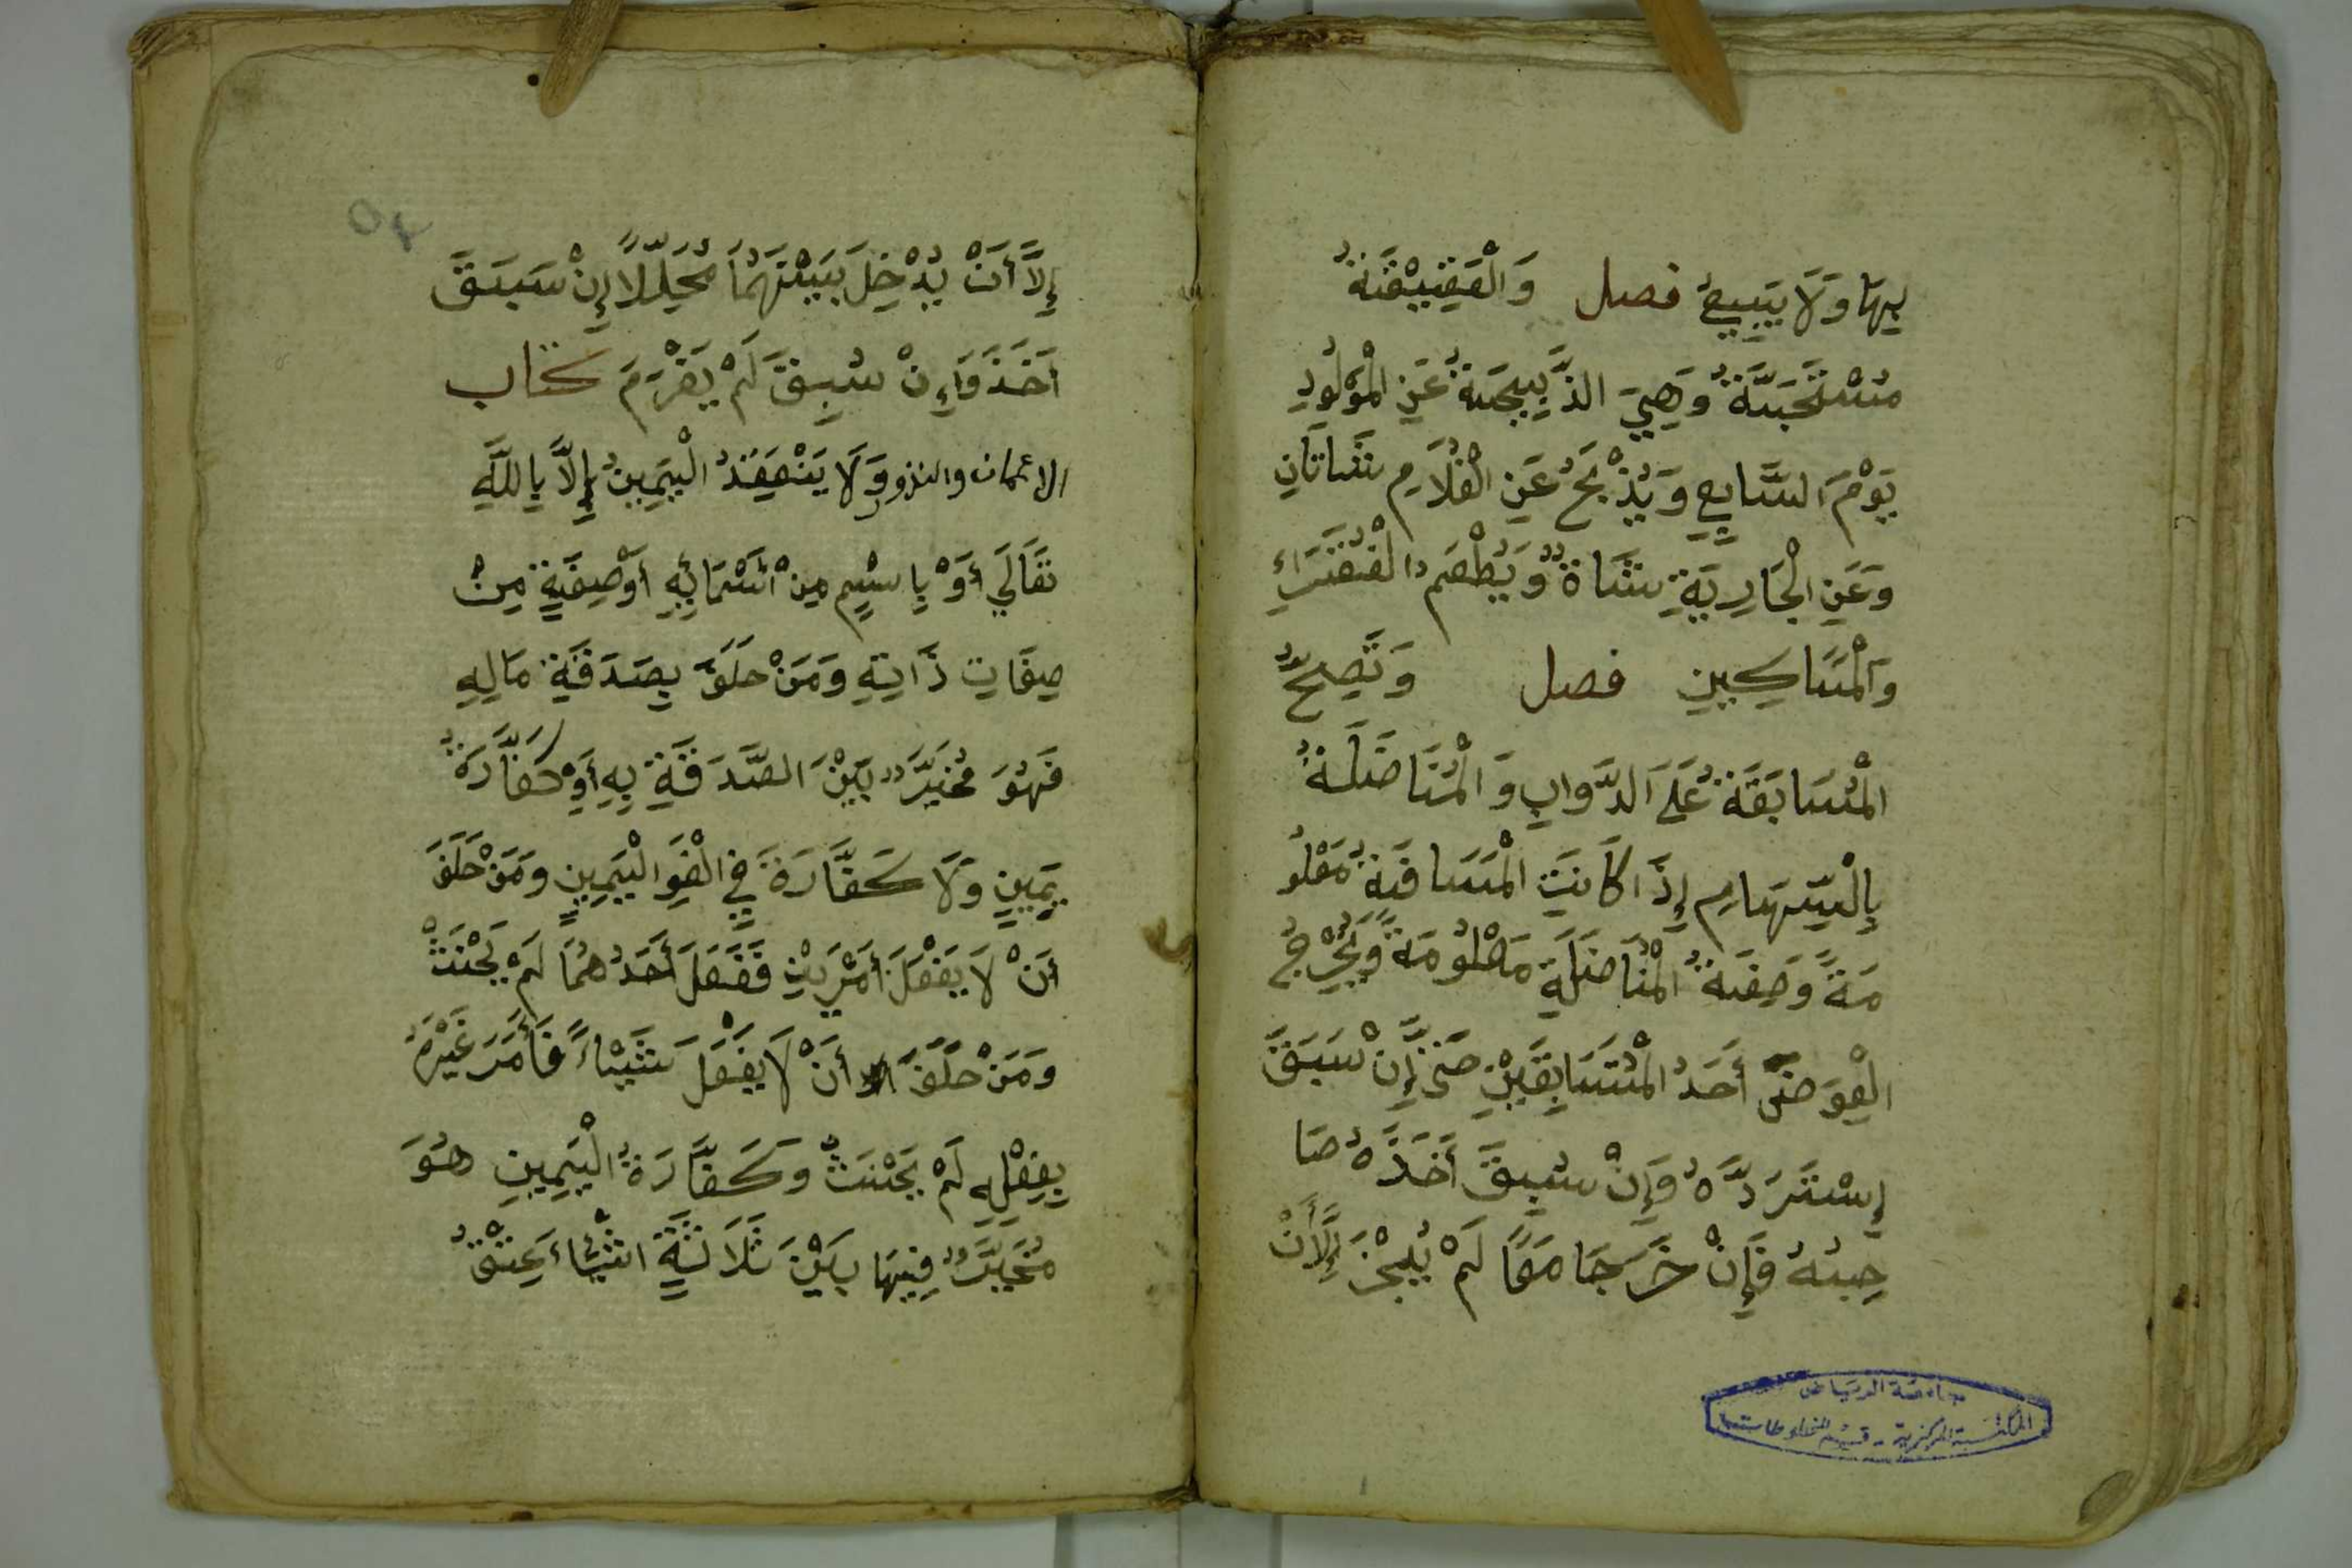 بِهَا وَلَا يَبِيعُ فصل وَالْعَقِيقَةُ
مُسْتَحَبَّةٌ وَهِيَ الذَّبِيحَةُ عَنِ الْمَوْلُودِ
يَوْمَ السَّابِعِ وَيُذْبَحُ عَنِ الْغُلَامِ شَاتَانِ
وَعَنِ الْجَارِيَةِ شَاةٌ وَيُطْعِمُ الْفُقَرَاءِ
وَالْمَسَاكِينِ فصل وَتَصِحُّ
الْمُسَابَقَةُ عَلَى الدَّوَابِ وَالْمُنَاضَلَةُ
بِالْسِّهَامِ إِذَا كَانَتِ الْمَسَافَةُ مَعْلُو
مَةً وَصِفَةُ الْمُنَاضَلَةِ مَعْلُومَةً وَيُخْرِجُ
الْعِوَضَ أَحَدُ الْمُتَسَابِقَيْنِ حَتَّى إِنْ سَبَقَ
إِسْتَرَدَّهُ وَإِنْ سُبِقَ أَخَذَهُ صَا
حِبُهُ فَإِنْ خَرَجَا مَعًا لَمْ يُجْزَ إِلَّا أَنْ
جامعة الرياض
المكتبة المركزية - قسم المخطوطات
٥٤
إِلَّا أَنْ يُدْخِلَ بَيْنَهُمَا مُحَلِّلًا إِنْ سَبَقَ
أَخَذَ وَإِنْ سُبِقَ لَمْ يَغْرَمَ كتاب
الايمان والنذور وَلَا يَنْعَقِدُ الْيَمِينُ إِلَّا بِاللَّهِ
تَعَالَي أَوْ بِاسْمٍ مِنْ أَسْمَائِهِ أَوْصِفَةٍ مِنْ
صِفَاتِ ذَاتِهِ وَمَنْ حَلَفَ بِصَدَقَةِ مَالِهِ
فَهُوَ مُخَيَّرٌ بَيْنَ الصَّدَقَةِ بِهِ أَوْ كَفَّارَةُ
يَمِينٍ وَلَا كَفَّارَةَ فِي الْغَوِ الْيَمِينِ وَمَنْ حَلَفَ
أَنْ لَا يَفْعَلَ أَمْرَيْنِ فَفَعَلَ أَحَدُهُمَا لَمْ يَحْنَثْ
وَمَنْ حَلَفَ أَنْ لَا يَفْعَلَ شَيْاءً فَأَمَرَ غَيْرَهُ
بِفِعْلِهِ لَمْ يَحْنَثْ وَكَفَّارَةُ الْيَمِينِ هُوَ
مُخَيَّرٌ فِيهَا بَيْنَ ثَلَاثَةِ اشْيَاءَ عِتْقُ